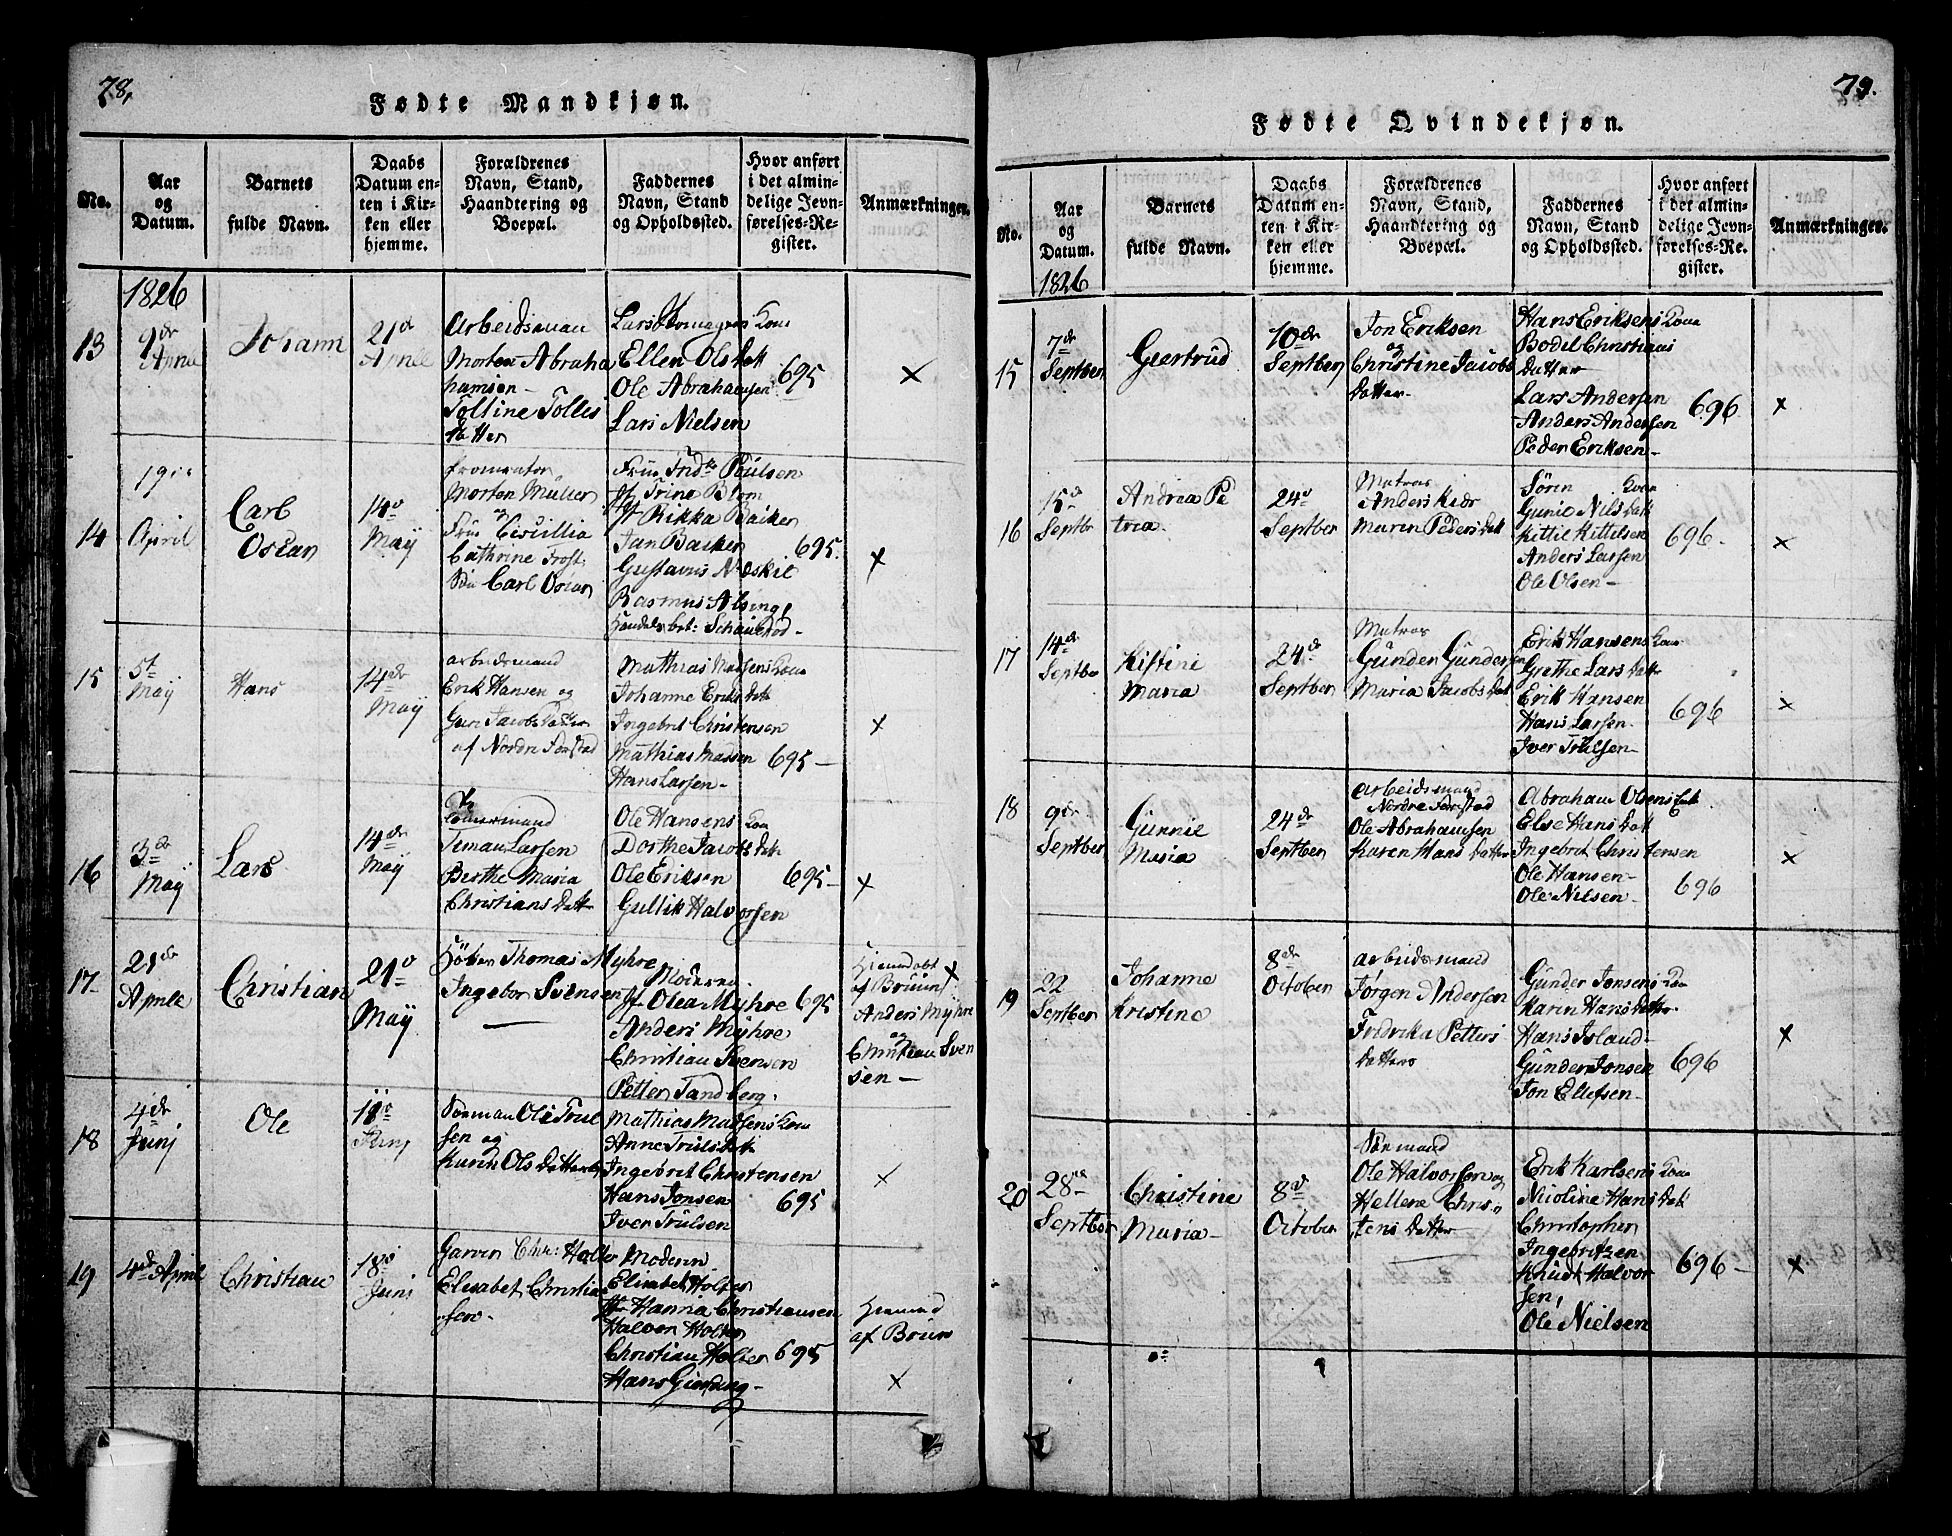 78,
Fødte Mandkjøn.
No.
Aar
og
Datum.
Barnets
fulde Navn.
Daabs
Datum en-
ten i Kir-
ken eller
hjemme.
Forældrenes
Navn, Stand,
Haandtering og
Boepæl.
Faddernes
Navn, Stand
og Opholdssted.
Hvor anført
i det almin-
delige Jevn-
førelses-Re-
gister.
Anmærkninger.
1826
13
9de
Aprile
Johann
21de
Aprile
Arbeidsman
Morten Abraha
hamsen
Tolline Tolles
Lars
Kone
Ellen Ols Datt
Ole Abrahamsen
Lars Nielsen
695
×
14
19
April
Carl
Oscar
14
Maÿ
Procurator
Morten Müller
og
Frue Cicillia
Cathrine Frost
Carl Oscar
Frue Poulsen
Jf Trine Blom
Jf Rikka Backer
Jan Backer
Gustavus
Rasmus Alsing
695.
×
15
5t
Maÿ
Hans
14de
Maÿ
arbeidsmand
Erik Hansen og
Guri Jacobs Datter
af Nordre
Mathias Madsens Kone
Johanne Eriks Datt
Ingebret Christensen
Mathias Madsen
Hans Larsen-
695-
×
16
3de
Maÿ
Lars
14de
Maÿ
Larsen
Berthe Maria
Christians Datt
Ole Hansens Kone
Dorthe Jacobs Dat
Ole Eriksen
Gullik Halvorsen
695-
×
17-
21de
Aprile
Christian
21
Maÿ
Thomas Myhre
Ingebor Svensen
Moderen
Jf Olea Myhre
Anders Mÿhre
Christian Svensen
Petter Tandberg.
695
×
af Bruun
Anders Mÿhre
og
Christian Sven
sen-
18
4de
Junj
Ole
18
Junj
Ole Trul
sen og
Karen Ols Datter
Mathias Madsens Kone
Anne Truls Dat
Ingebret Christensen
Hans Jonsen
Iver Trulsen
695
×
19
4de Aprile
Christian
18
Junj
Garver Chr: Holter
Elisabet Christian
sen-
Moderen
Elisabet Holter
Jfr Hanna Christiansen
Halvor Holter
Christian Holter
Hans
695
af Bruun
×
79.
Fødte Qvindekjøn.
No.
Aar
og
Datum.
Barnets
fulde Navn.
Daabs
Datum en-
ten i Kir-
ken eller
hjemme.
Forældrenes
Navn, Stand,
Haandtering og
Boepæl.
Faddernes
Navn, Stand
og Opholdssted.
Hvor anført
i det almin-
delige Jevn-
førelses-Re-
gister.
Anmærkninger.
1826
15
7de
Septber
Giertrud
10de
Septber
Jon Eriksen
og
Christine Jacobs
Datter-
Hans Eriksens Kone
Bodil Christians
Datter
Lars Andersen
Anders Andersen
Peder Eriksen-
696
×
16
15de
Septbr
Andrea Pe
tria.
24
Septber
Matros
Anders
Maren Peders Datt
Søren Kone
Gunie Nils Datt
Kittil Kittilsen
Anders Larsen
Ole Olsen-
696-
×
17
14de
Septber
Kistine
Maria
24de
Septber
Matros
Gunder Gundersen
Maria Jacobs Dat
Erik Hansens Kone
Grethe Lars Datter
Erik Hansen
Hans Larsen
Iver Trulsen-
696
×
18
9de
Septber
Gunnie
Maria
24de
Septber
Arbeidsmand
Nordre
Ole Abrahamsen
Karen Hans Datter
Abraham Olsens
Else Hans Dat
Ingebret Christensen
Ole Hansen-
Ole Nielsen-
696
×
19
22
Septber
Johanne
Kristine
8de
October
arbeidsmand
Jørgen Andersen
Fredrika Petters
Datter
Gunder Jonsens Kone
Karen Hans Datter
Hans Island-
Gunder Jonsen
Jon Ellefsen-
696
×
20
28
Septber
Christine
Maria-
8
October
Ole Halvorsen og
Hellene Chris
tens Datter
Erik Karlsens Kone
Nicoline Hans Dat
Christopher
Ingebritsen
Knudt Halvor
sen,
Ole Nielsen
696-
×